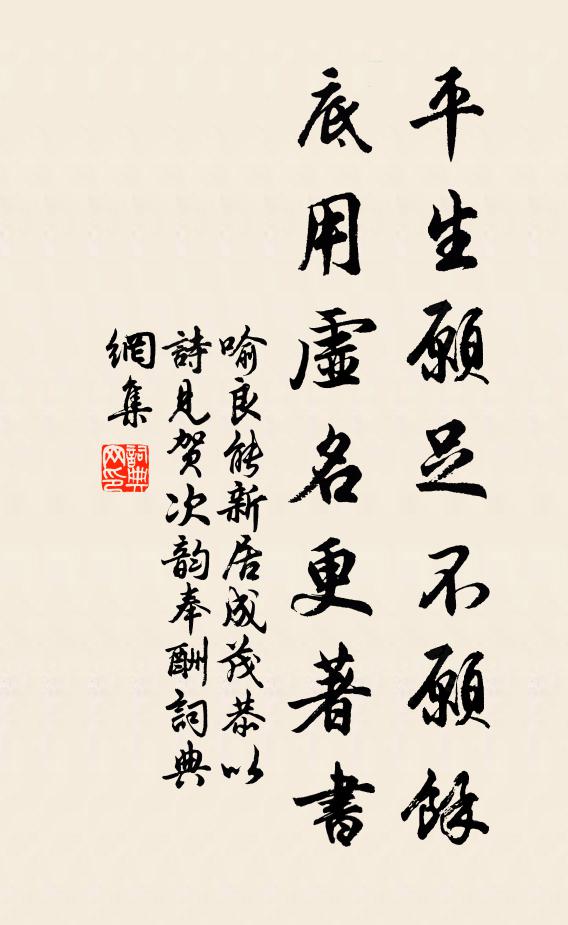 平生願足不願餘
底用虛名更著書
喻良能新居成茂恭以
詩見贺次韵奉酬詞典
網集
詞典
网印